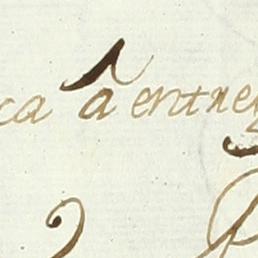 ca â entre